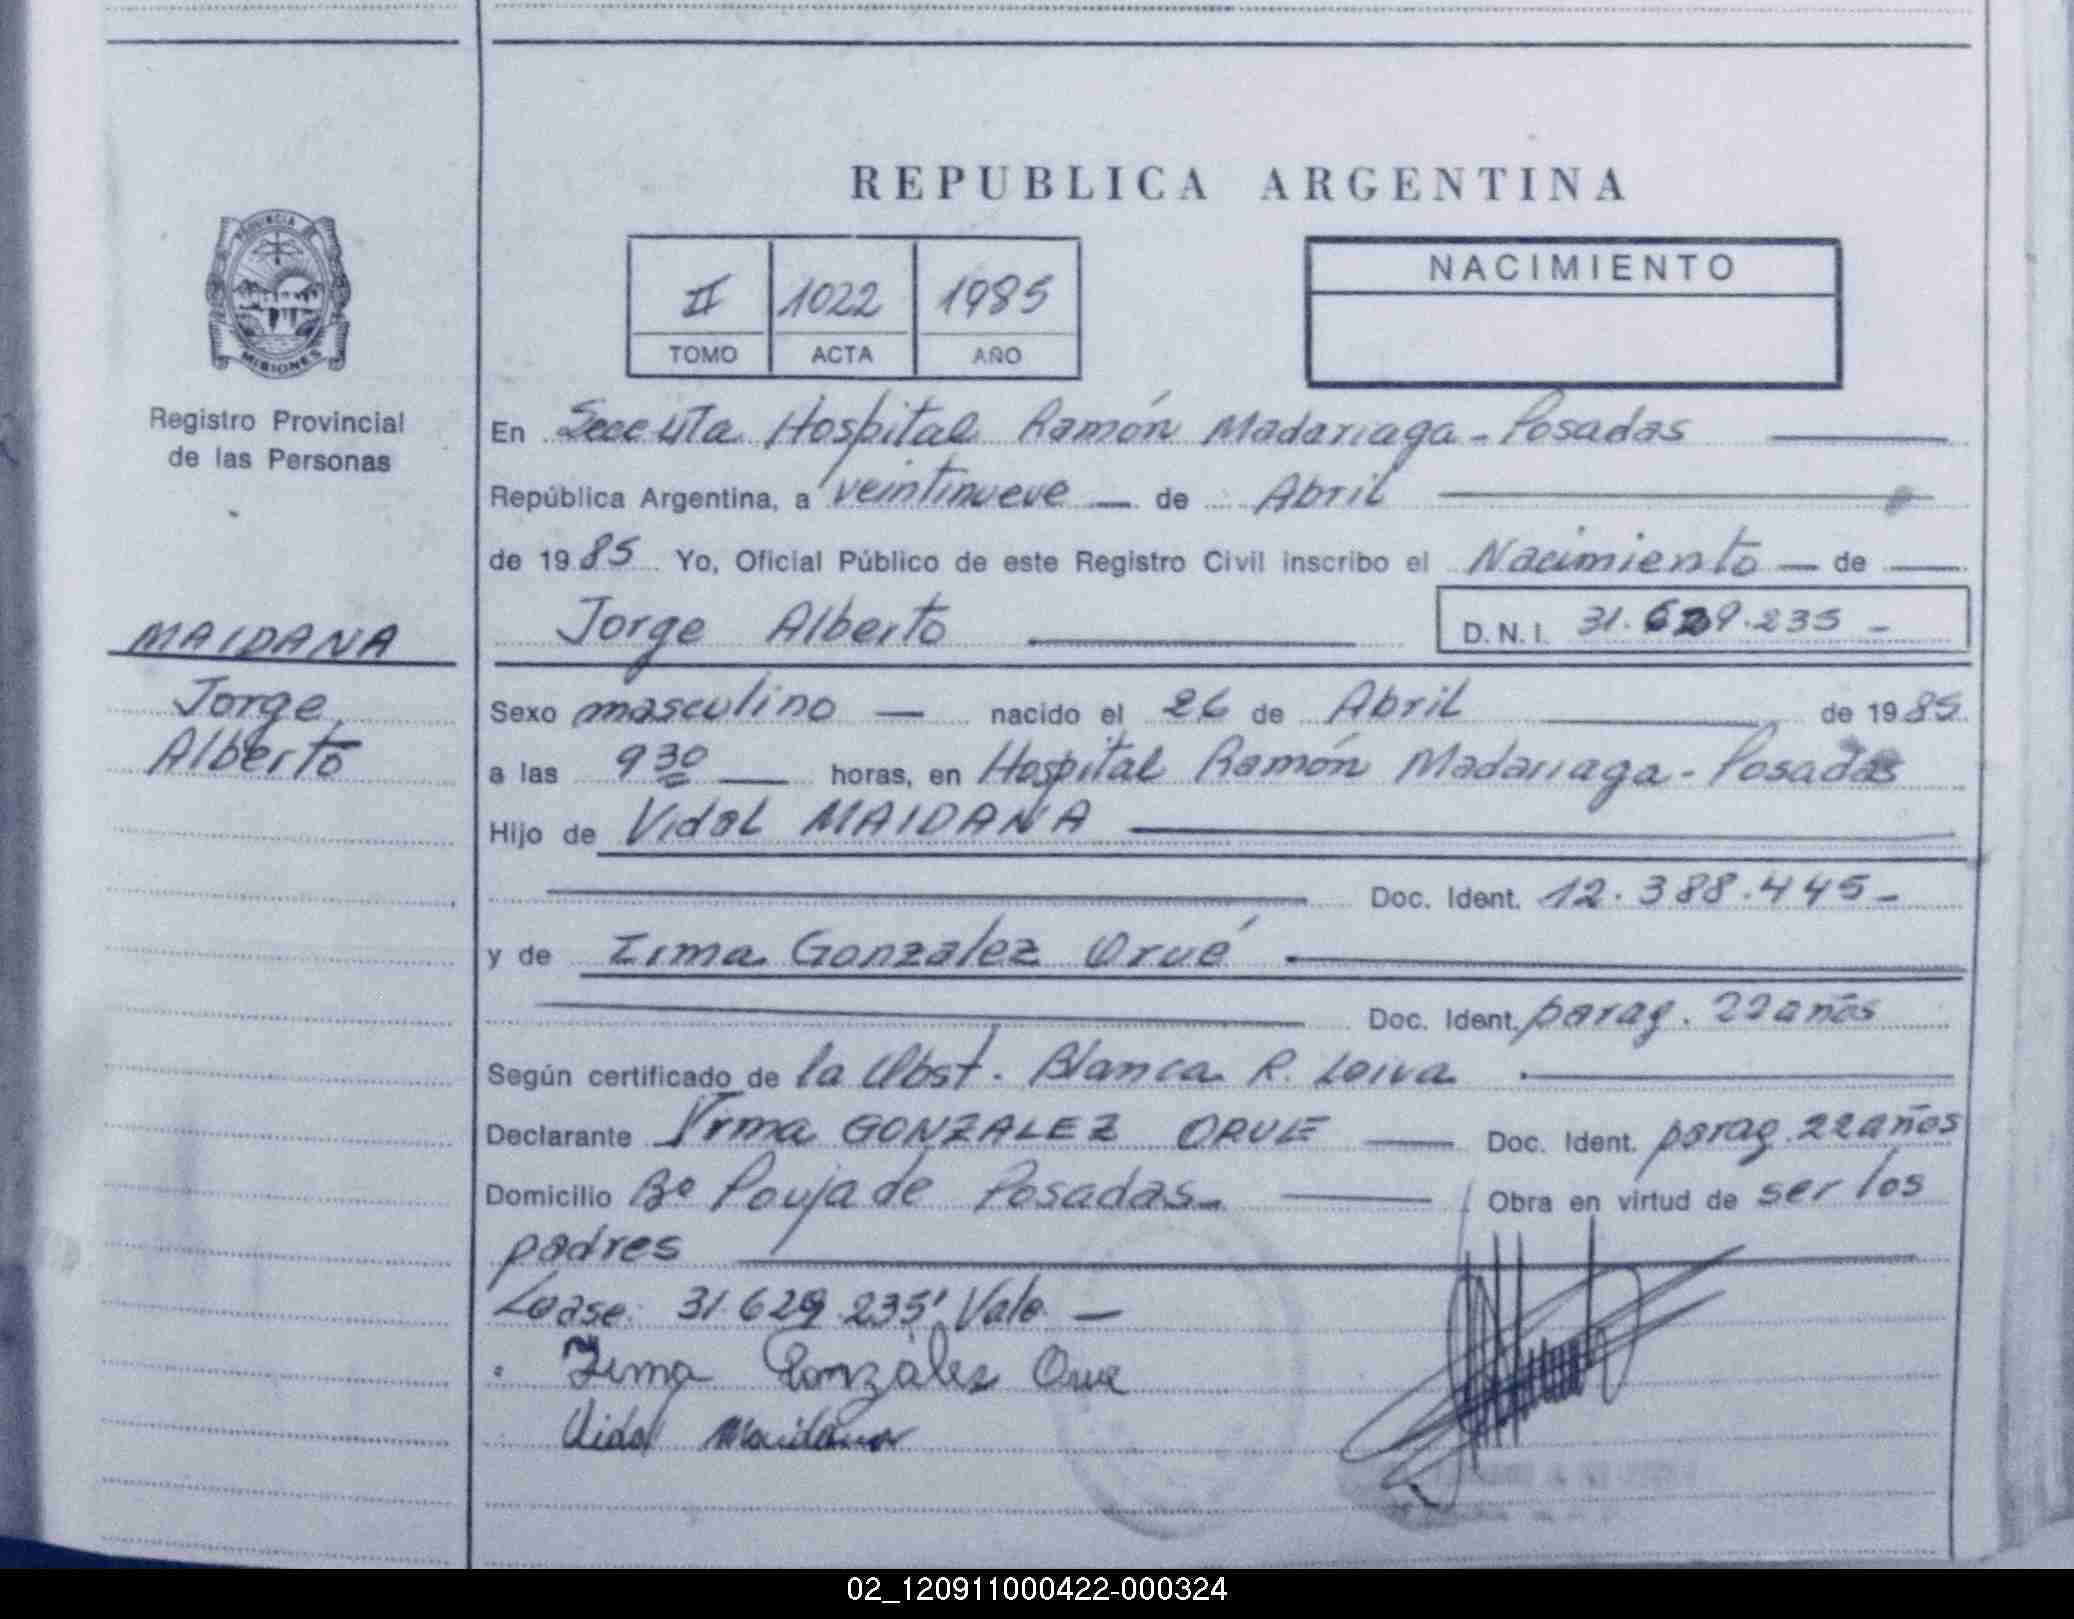 REPUBLICA ARGENTINA
PROVINCIA DE
MISIONES
Registro Provincial
de las Personas
II 1022 1985
TOMO ACTA AÑO
NACIMIENTO
En Hospital Ramón Madariaga - Posadas
República Argentina, a veintinueve — de Abril
de 1985 Yo, Oficial Público de este Registro Civil inscribo el Nacimiento — de —
Jorge Alberto
D.N.I. 31.629.235 -
MAIDANA
Jorge
Alberto
Sexo masculino — nacido el 26 de Abril de 1985
a las 9 30 — horas, en Hospital Ramón Madariaga - Posadas
Hijo de Vidal MAIDANA
Doc. Ident. 12.388.445 -
y de Irma Gonzalez Orué
Doc. Ident. parag. 22 años
Según certificado de la Obst. Blanca R. Loiva
Declarante Yrma GONZALEZ ORUE — Doc. Ident. parag. 22 años
Domicilio Bº Poujade Posadas - — Obra en virtud de ser los
padres
Lease: 31.629.235' Vale —
Irma Gonzàlez Orue
Vidal Maidana
02_120911000422-000324